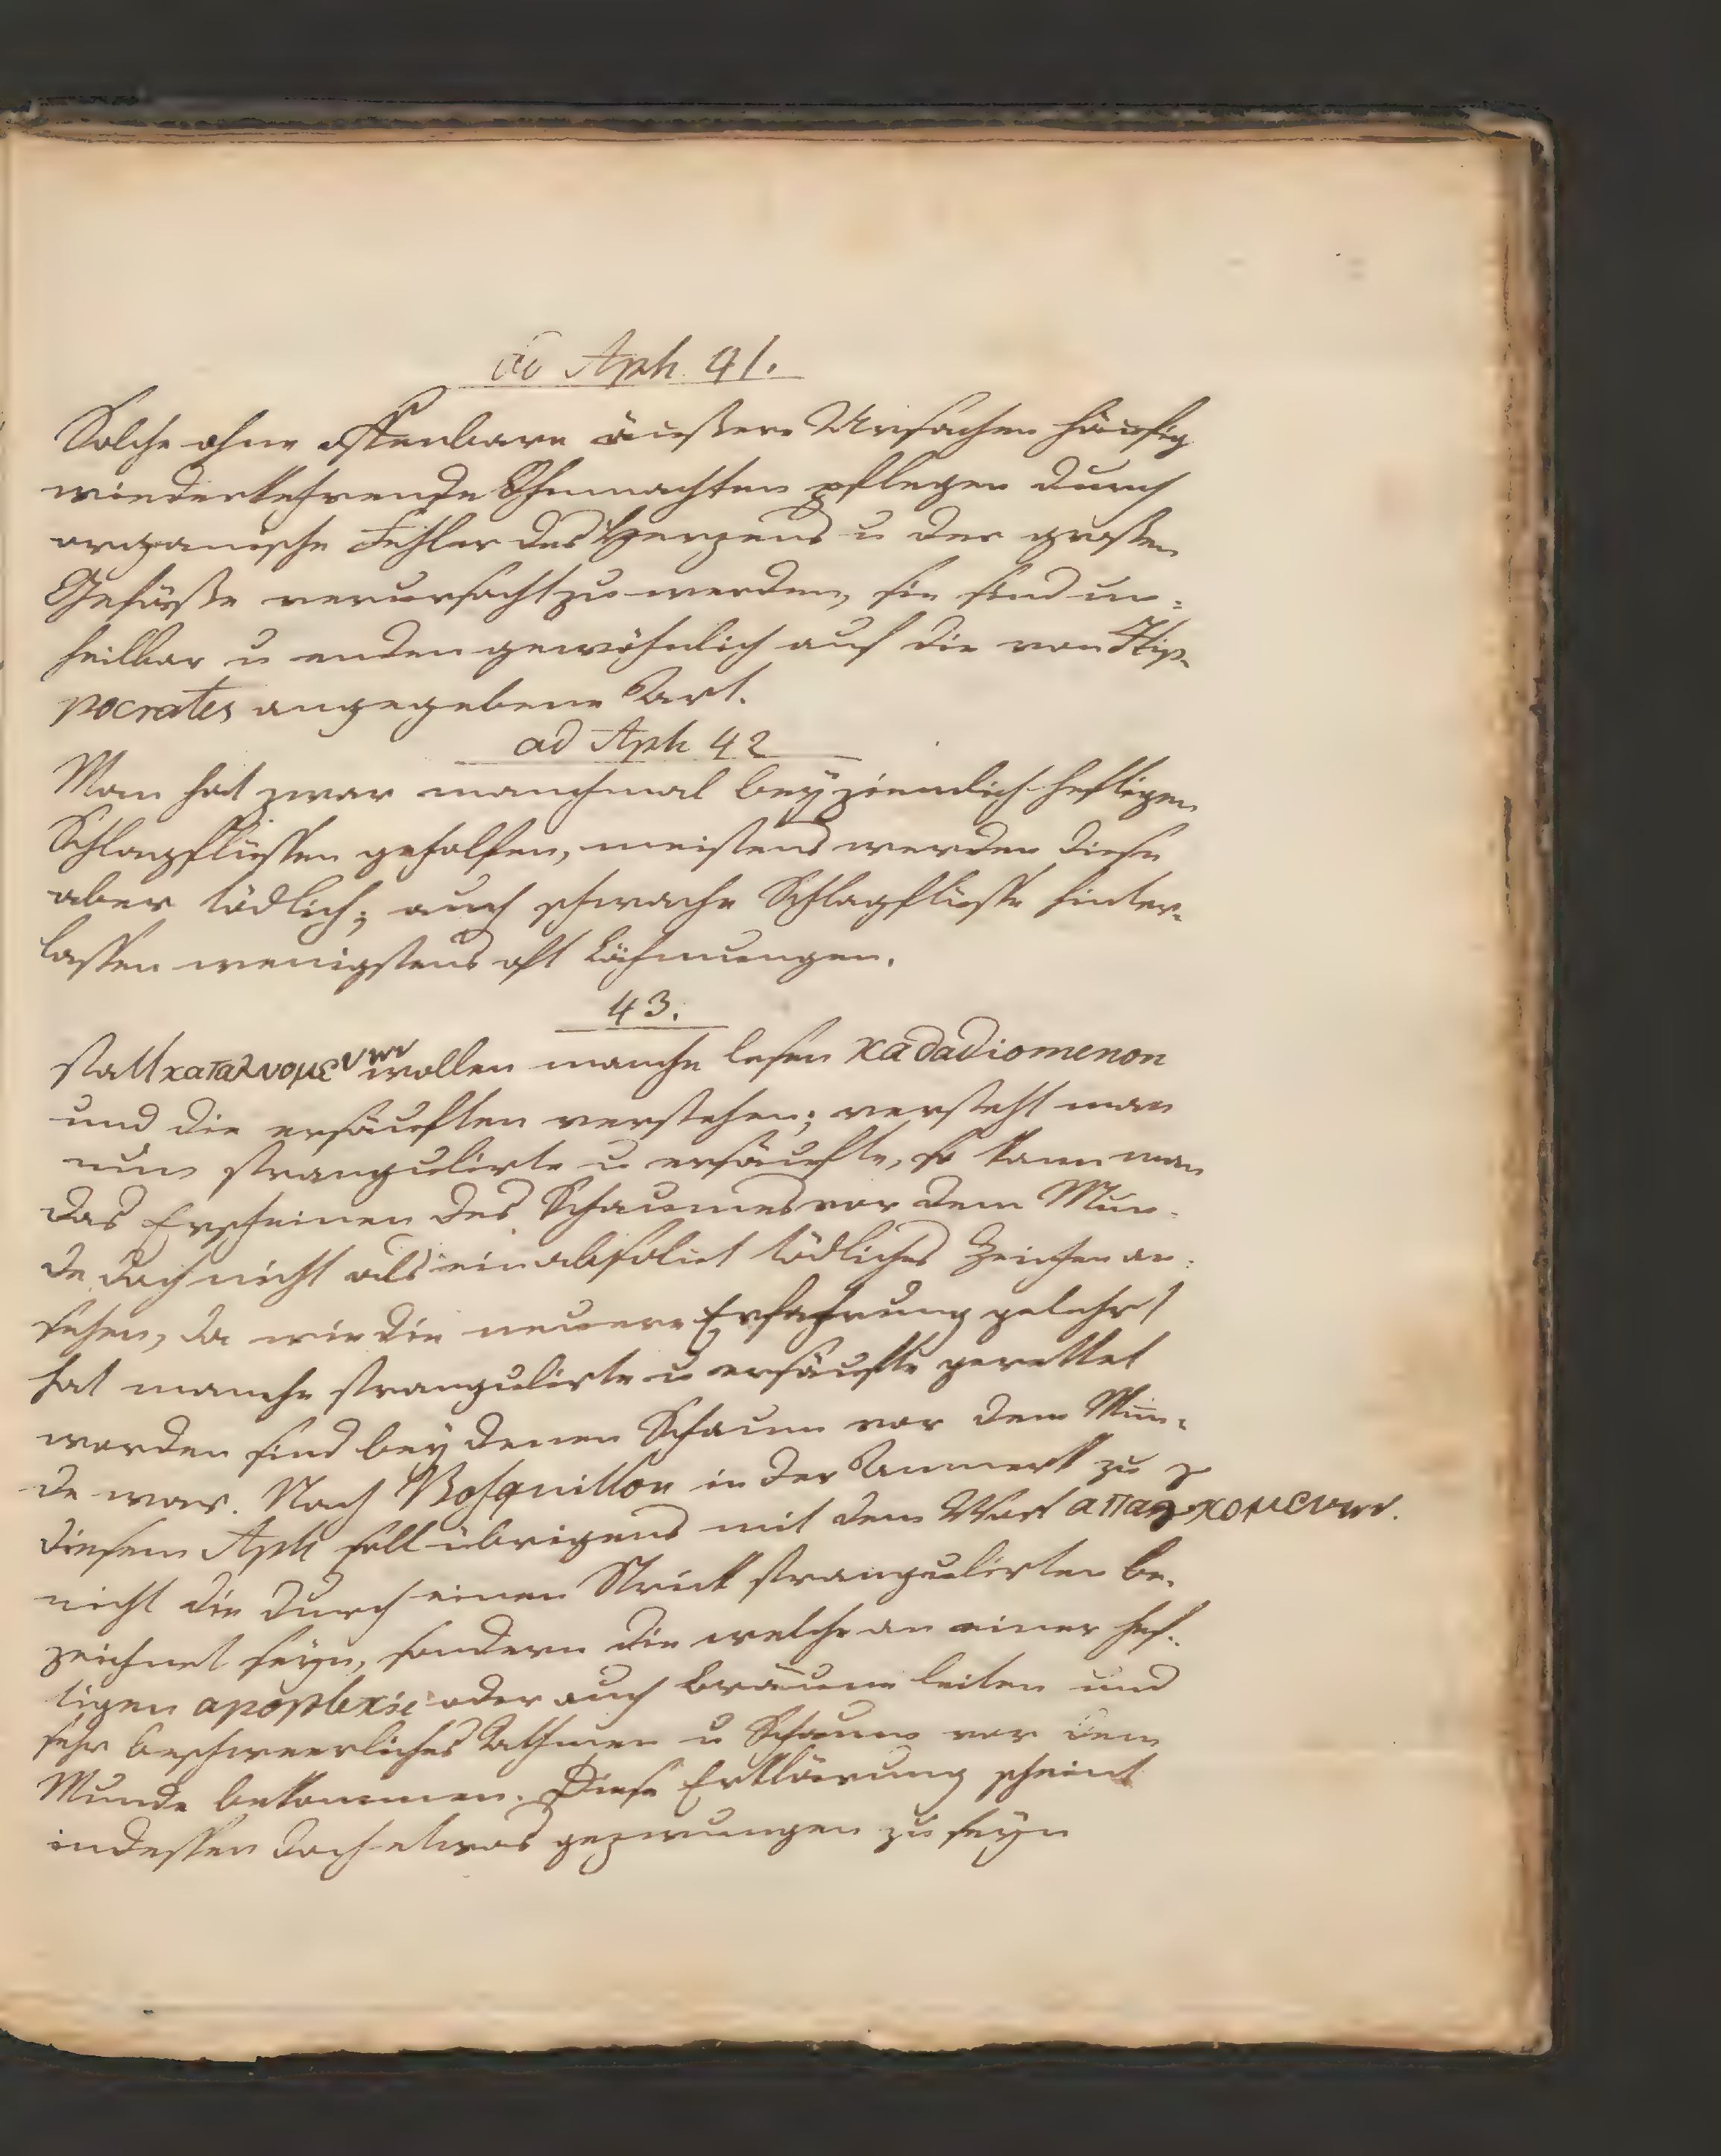 ad Aph 41.
Solche ohne offenbare äußere Ursachen häufig
wiederkehrende Ohnmachten pflegen durch
organische Fehler des Herzens u der großen
Gefäße verursacht zu werden, sie sind un=
heilbar u enden gewöhnlich auf die von Hip=
pocrates angegebene Art.
ad Aph 42
Man hat zwar manchmal bey ziemlich heftigen
Schlagflüssen geholfen, meistens werden diese
aber tödlich; auch schwache Schlagflüsse hinter=
lassen wenigstens oft Lähmungen.
43.
statt καταλυομενων wollen manche lesen καdadiomenon
und die ersäuften verstehen; versteht man
nun strangulirte u ersäufte, so kann man
das Erscheinen des Schaumes vor dem Mun=
de doch nicht als ein absolut tödliches Zeichen an=
sehen, da wie die neuere Erfahrung gelehrt
hat manche strangulirte u ersäufte gerettet
worden sind bey denen Schaum vor dem Mun=
de war. Nach Bosquillon in der Anmerk zu
diesem Aph soll übrigens mit dem Wort απαγχομενων.
nicht die durch einen Strick strangulirten be=
zeichnet seyn, sondern die welche an einer hef=
tigen apoplexie oder auch bräune leiten und
sehr beschwerliches Athmen u Schaum vor dem
Munde bekommen. Diese Erklärung scheint
indessen doch etwas gezwungen zu seyn